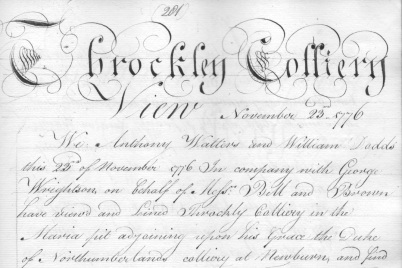 201
Throckley Colliery
View November 23d 1776
We Anthony Watters and William Dodds
this 22d of November 1776 In company with George
Wrightson, on behalf of Messrs Bell and Brown
have viewd and lined Throckly Colliery in the
Maria pit adjoining upon his Grace the Duke
of Northumberlands colliery at Newburn, and find